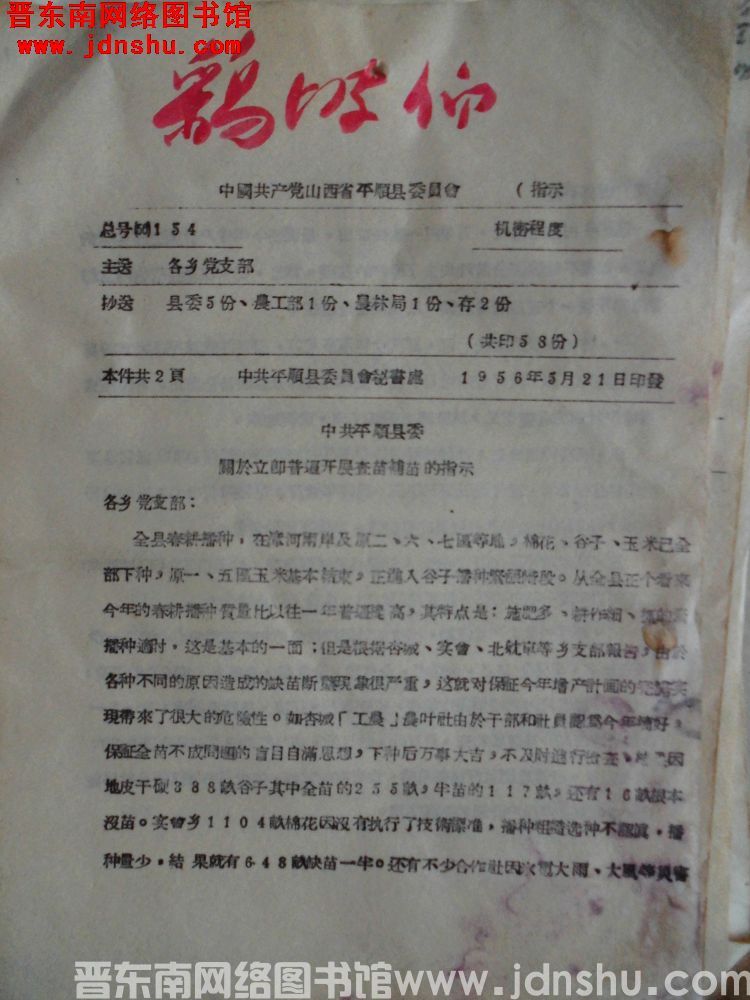 晋东南网络图书馆
www.jdnshu.com
中國共产党山西省平順县委員會 （指示
总号 154 机密程度
主送 各乡党支部
抄送 县委5份、農工部1份、農林局1份、存2份
（共印58份）
本件共2頁 中共平順县委員會祕書處 1956年5月21日印發
中共平順县委
關於立即普遍开展查苗補苗的指示
各乡党支部：
全县春耕播种，在 河兩岸及原二、六、七區等地，棉花、谷子、玉米已全
部下种，原一、五區玉米基本结束，正進入谷子播种緊張階段。从全县正个看來
今年的春耕播种質量比以往一年普遍提高，其特点是：施肥多、耕作細、
播种適时，这是基本的一面；但是根据杏城、实會、北耽車等乡支部報告，由於
各种不同的原因造成的缺苗断壟現象很严重，这就对保証今年增产計画的 实
現帶來了很大的危險性。如杏城「工農」農叶社由於干部和社員認爲今年墒好，
保証全苗不成問題的盲目自滿思想，下种后万事大吉，不及时進行檢查， 因
地皮干硬388畝谷子其中全苗的255畝，半苗的117畝，还有16畝根本
沒苗。实會乡1104畝棉花因沒有执行了技術标准，播种粗糙选种不認真，播
种量少，結果就有648畝缺苗一半。还有不少合作社因冰雹大雨、大風等災害
晋东南网络图书馆www.jdnshu.com